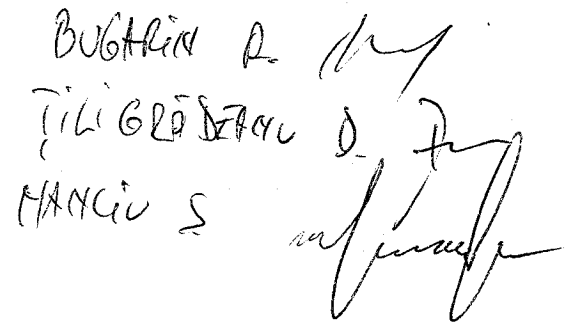 BUGARIN R.
ȚILIGRĂDEANU D.
MANCIU S